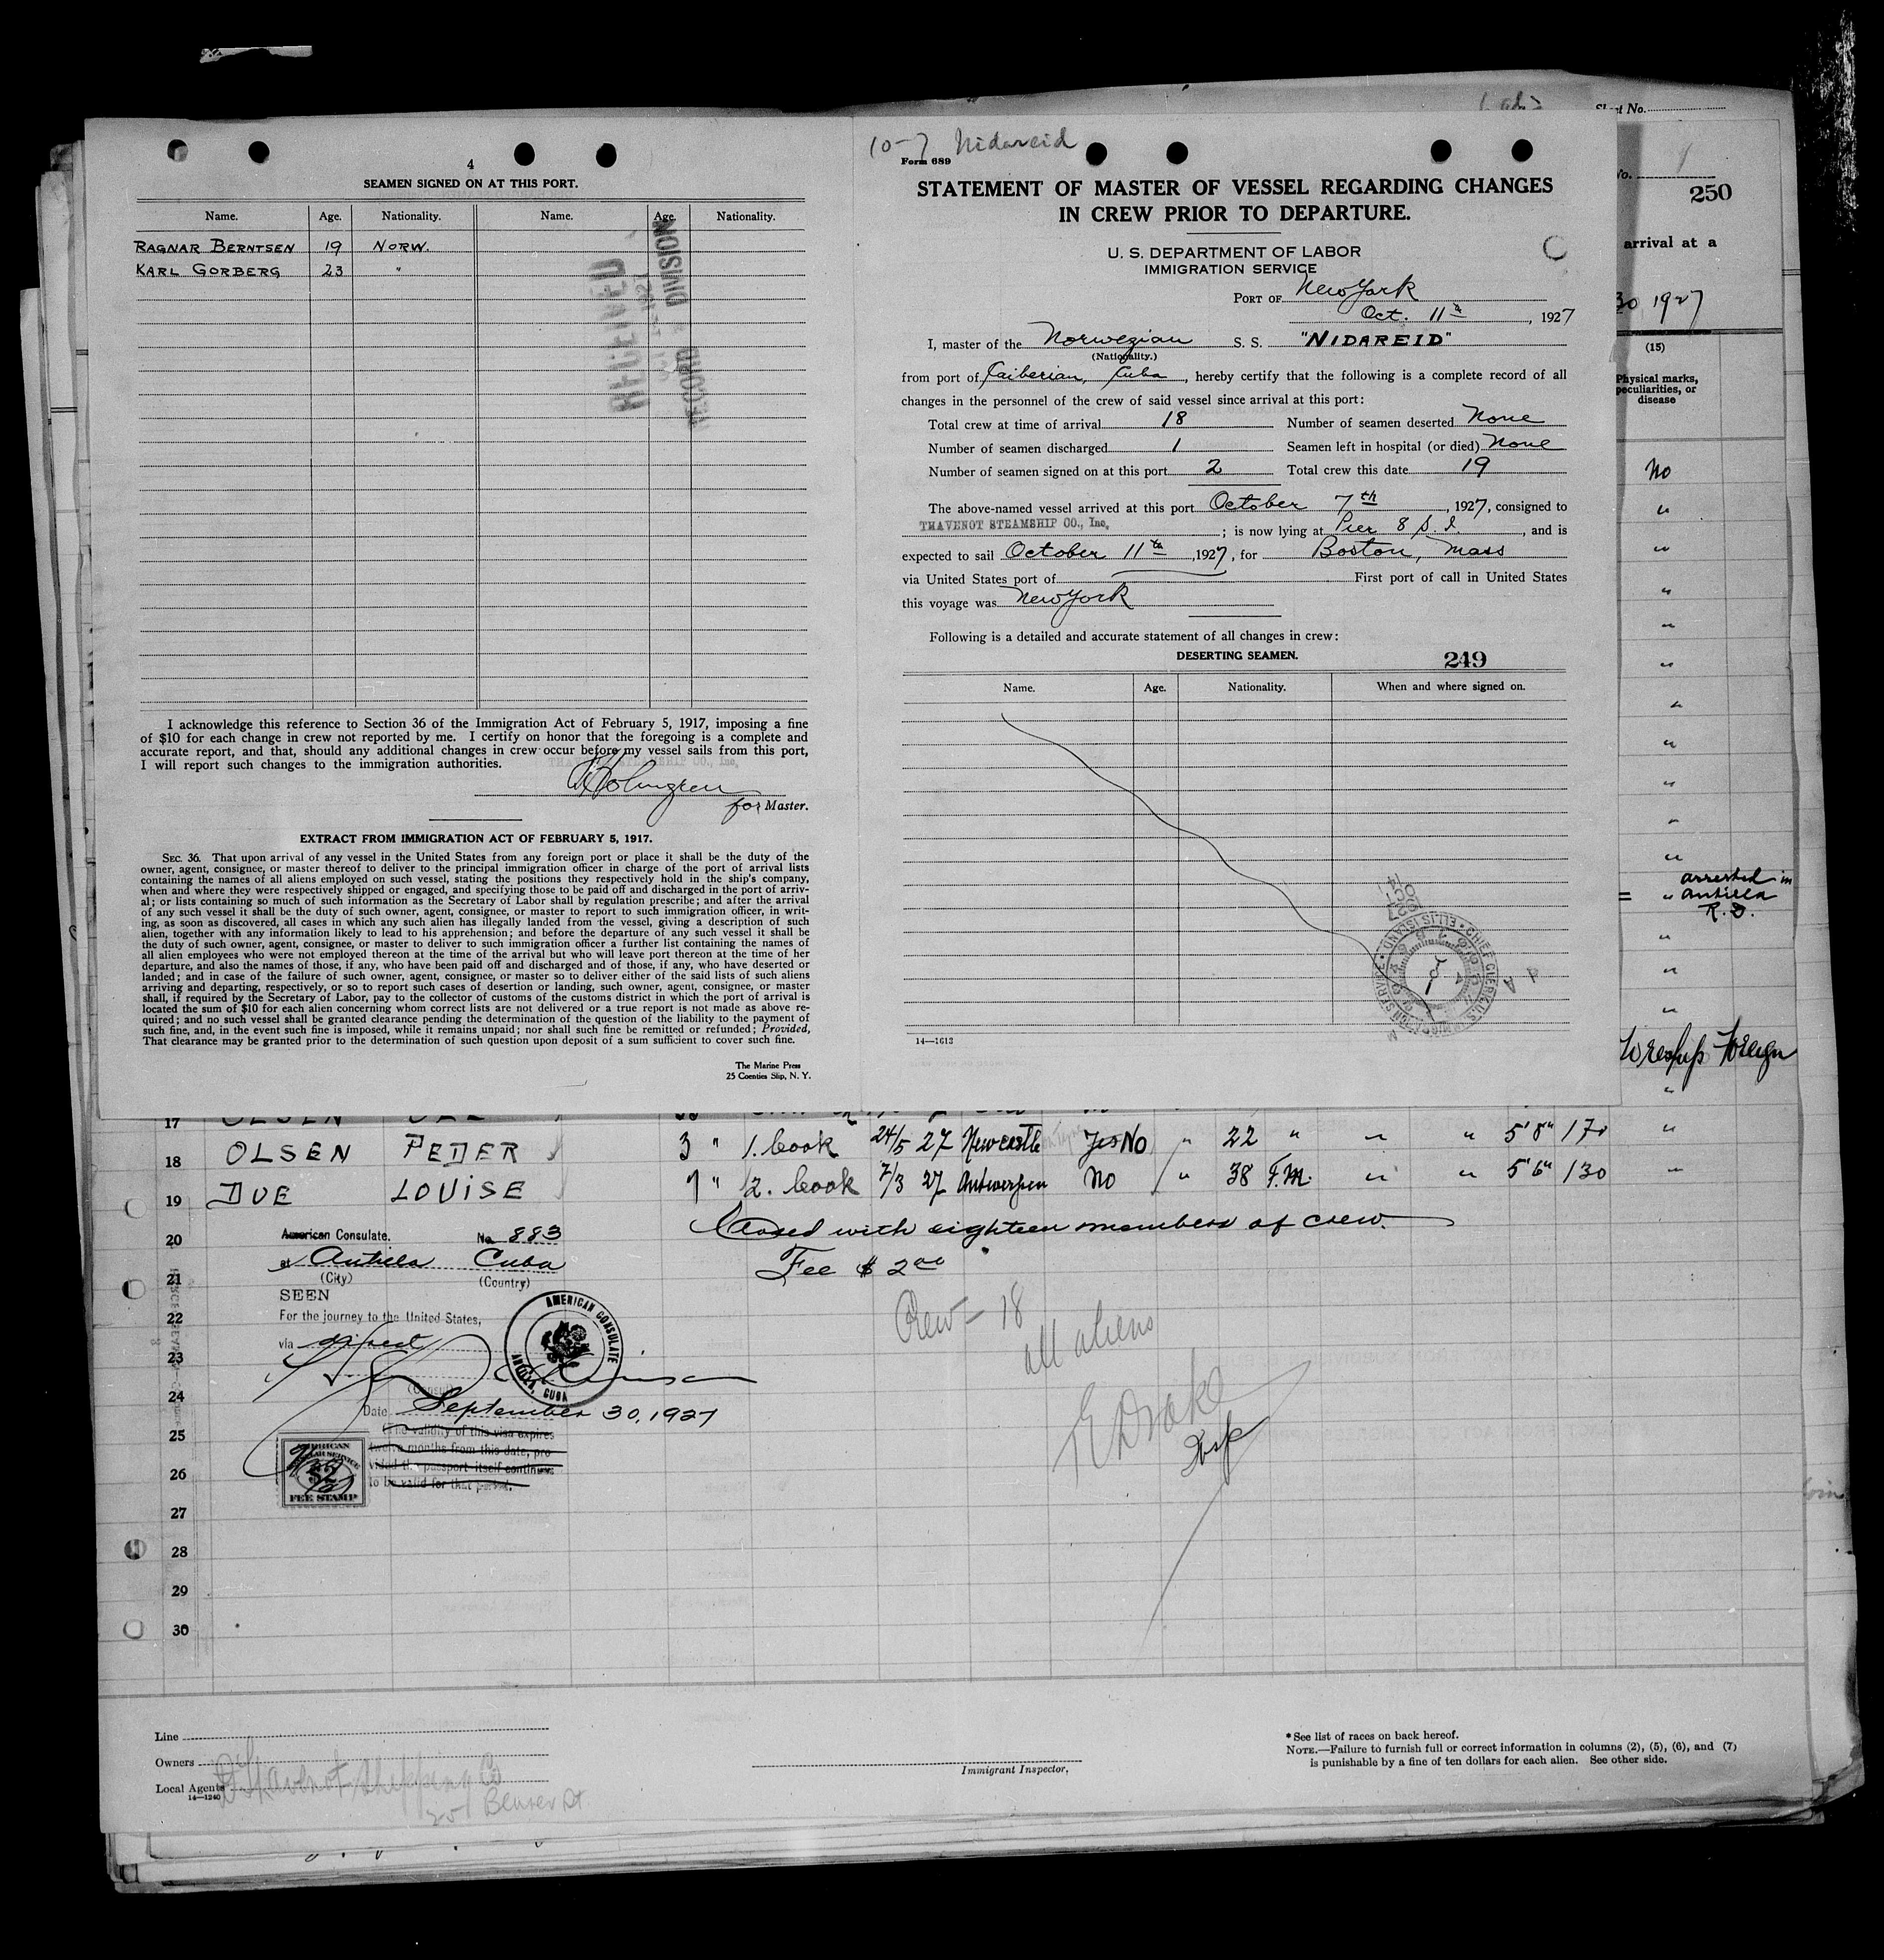 4
SEAMEN SIGNED ON AT THIS PORT.
Name. Age. Nationality. Name. Age. Nationality.
RAGNAR BERNTSEN 19 NORW.
KARL GORBERG 23 "
RECEIVED
RECORD DIVISION
I acknowledge this reference to Section 36 of the Immigration Act of February 5, 1917, imposing a fine
of $10 for each change in crew not reported by me. I certify on honor that the foregoing is a complete and
accurate report, and that, should any additional changes in crew occur before my vessel sails from this port,
I will report such changes to the immigration authorities.
THAVENOT STEAMSHIP CO., Inc.
Holmgren
for Master.
EXTRACT FROM IMMIGRATION ACT OF FEBRUARY 5, 1917.
SEC. 36. That upon arrival of any vessel in the United States from any foreign port or place it shall be the duty of the
owner, agent, consignee, or master thereof to deliver to the principal immigration officer in charge of the port of arrival lists
containing the names of all aliens employed on such vessel, stating the positions they respectively hold in the ship's company,
when and where they were respectively shipped or engaged, and specifying those to be paid off and discharged in the port of arriv-
al; or lists containing so much of such information as the Secretary of Labor shall by regulation prescribe; and after the arrival
of any such vessel it shall be the duty of such owner, agent, consignee, or master to report to such immigration officer, in writ-
ing, as soon as discovered, all cases in which any such alien has illegally landed from the vessel, giving a description of such
alien, together with any information likely to lead to his apprehension; and before the departure of any such vessel it shall be
the duty of such owner, agent, consignee, or master to deliver to such immigration officer a further list containing the names of
all alien employees who were not employed thereon at the time of the arrival but who will leave port thereon at the time of her
departure, and also the names of those, if any, who have been paid off and discharged and of those, if any, who have deserted or
landed; and in case of the failure of such owner, agent, consignee, or master so to deliver either of the said lists of such aliens
arriving and departing, respectively, or so to report such cases of desertion or landing, such owner, agent, consignee, or master
shall, if required by the Secretary of Labor, pay to the collector of customs of the customs district in which the port of arrival is
located the sum of $10 for each alien concerning whom correct lists are not delivered or a true report is not made as above re-
quired; and no such vessel shall be granted clearance pending the determination of the question of the liability to the payment of
such fine, and, in the event such fine is imposed, while it remains unpaid; nor shall such fine be remitted or refunded; Provided,
That clearance may be granted prior to the determination of such question upon deposit of a sum sufficient to cover such fine.
The Marine Press
25 Coenties Slip, N. Y.
10-7 Nidareid
Form 689
STATEMENT OF MASTER OF VESSEL REGARDING CHANGES
IN CREW PRIOR TO DEPARTURE.
U. S. DEPARTMENT OF LABOR
IMMIGRATION SERVICE
PORT OF New York
Oct. 11th, 1927
I, master of the Norwegian S. S. "NIDAREID"
(Nationality.)
from port of Caiberian, Cuba, hereby certify that the following is a complete record of all
changes in the personnel of the crew of said vessel since arrival at this port:
Total crew at time of arrival 18 Number of seamen deserted None
Number of seamen discharged 1 Seamen left in hospital (or died) None
Number of seamen signed on at this port 2 Total crew this date 19
The above-named vessel arrived at this port October 7th, 1927, consigned to
THAVENOT STEAMSHIP CO., Inc. ; is now lying at Pier 8 S. I., and is
expected to sail October 11th, 1927, for Boston, Mass
via United States port of First port of call in United States
this voyage was New York
Following is a detailed and accurate statement of all changes in crew:
DESERTING SEAMEN. 249
Name. Age. Nationality. When and where signed on.
14—1613
Sheet No.
No.
250
arrival at a
30 1927
(15)
Physical marks,
peculiarities, or
disease
No
arrested in
" Antilla
Foreign
17 OLSEN
18 OLSEN PEDER 3 " 1. Cook 24/5 27 Newcastle Yes No " 22 " " " 5'8" 170 "
19 DUE LOUISE 7 " 2. Cook 7/3 27 Antwerpen No " 38 F.M. " " 5'6" 130 "
20 American Consulate. No. 883 Closed with eighteen members of crew.
at Antilla Cuba Fee $ 2.00
21 (City) (Country)
SEEN
22 For the journey to the United States, Crew - 18
via direct all aliens
23
AMERICAN CONSULATE
ANTILLA, CUBA
(Consul)
24 Date September 30, 1927 E Drake
Insp
25 (The validity of this visa expires
twelve months from this date, pro-
26 vided the passport itself continues
to be valid for that period.
AMERICAN
$2
FEE STAMP
27
28
29
30
Line
Owners
Local Agents Thavenot Shipping Co
14—1240
25 Beaver St
Immigrant Inspector.
* See list of races on back hereof.
NOTE.—Failure to furnish full or correct information in columns (2), (5), (6), and (7)
is punishable by a fine of ten dollars for each alien. See other side.